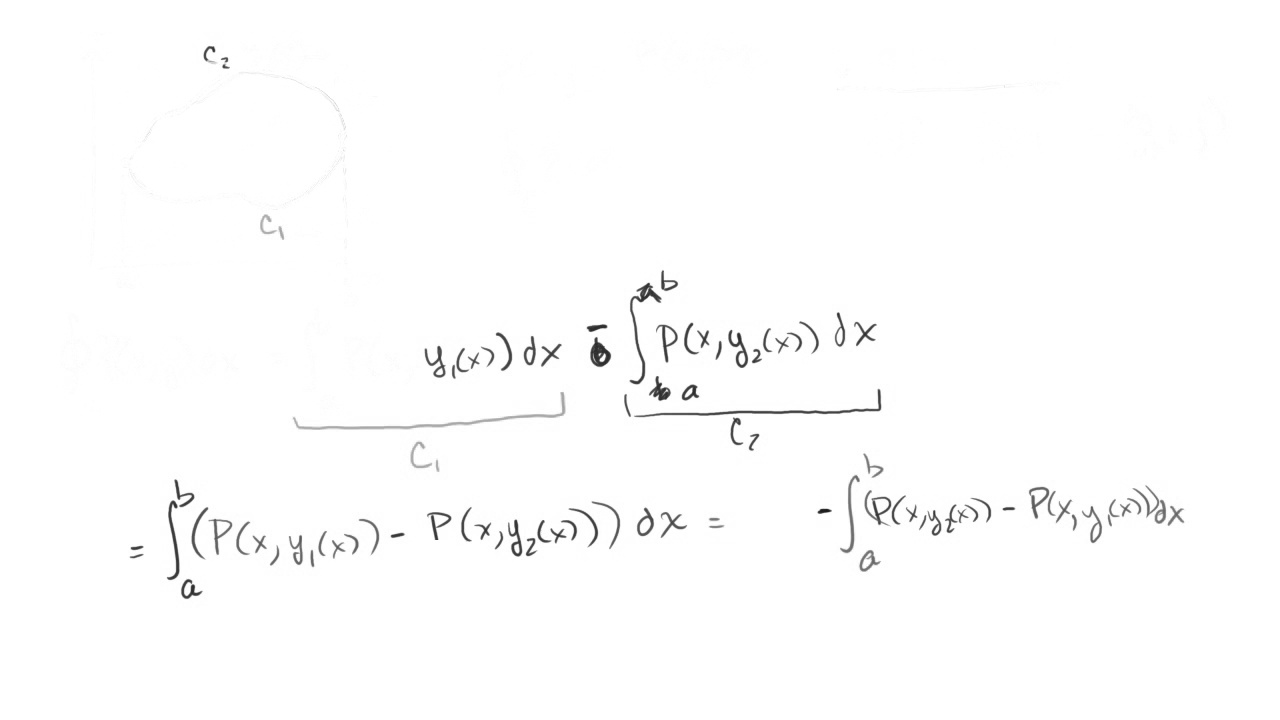 C₂
C₁
y₁(x)) dx - ∫ₐᵇ P(x, y₂(x)) dx
C₁ C₂
= ∫ₐᵇ (P(x, y₁(x)) - P(x, y₂(x))) dx = - ∫ₐᵇ (P(x, y₂(x)) - P(x, y₁(x))) dx